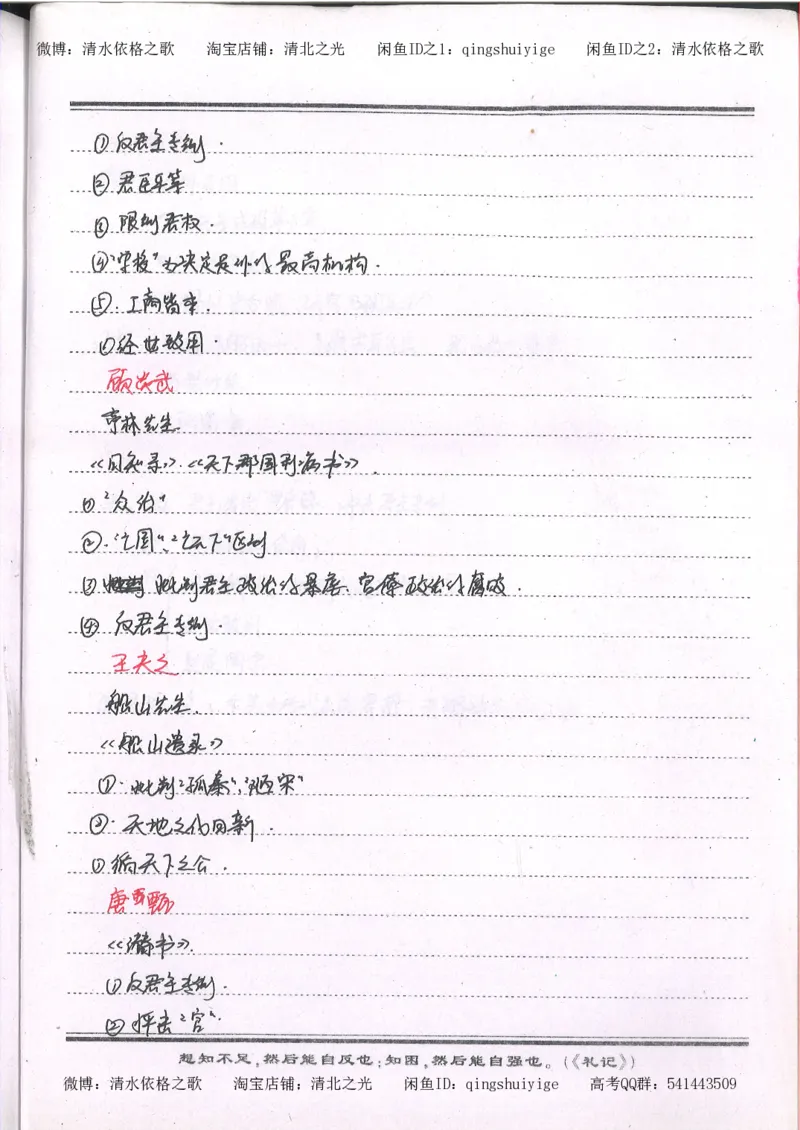 微博：清水依格之歌　淘宝店铺：清北之光　闲鱼ID之1：qingshuiyige　闲鱼ID之2：清水依格之歌
①反君主专制.
②君臣平等
③限制君权.
④"学校"为决定是非的最高机构.
⑤.工商皆本.
⑥经世致用.
顾炎武
亭林先生.
《日知录》.《天下郡国利病书》.
①"众治"
②."亡国"、"亡天下"区别
③批判君主政治的暴虐、官僚政治的腐败.
④反君主专制
王夫之
船山先生.
《船山遗录》
①.批判"孤秦"，"陋宋"
②.天地之化日新.
①循天下之公.
唐甄
《潜书》.
①反君主专制.
②抨击"官".
想知不足,然后能自反也;知困,然后能自强也。(《礼记》)
微博：清水依格之歌　淘宝店铺：清北之光　闲鱼ID：qingshuiyige　高考QQ群：541443509